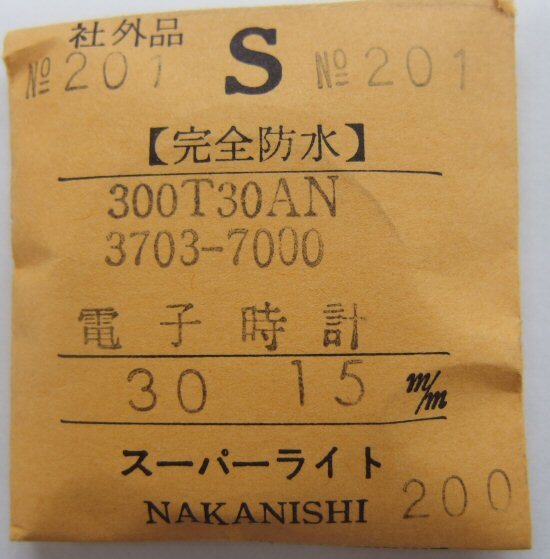 社外品
№201 S №201
【完全防水】
300T30AN
3703-7000
電子時計
30 15 m/m
スーパーライト
NAKANISHI 200